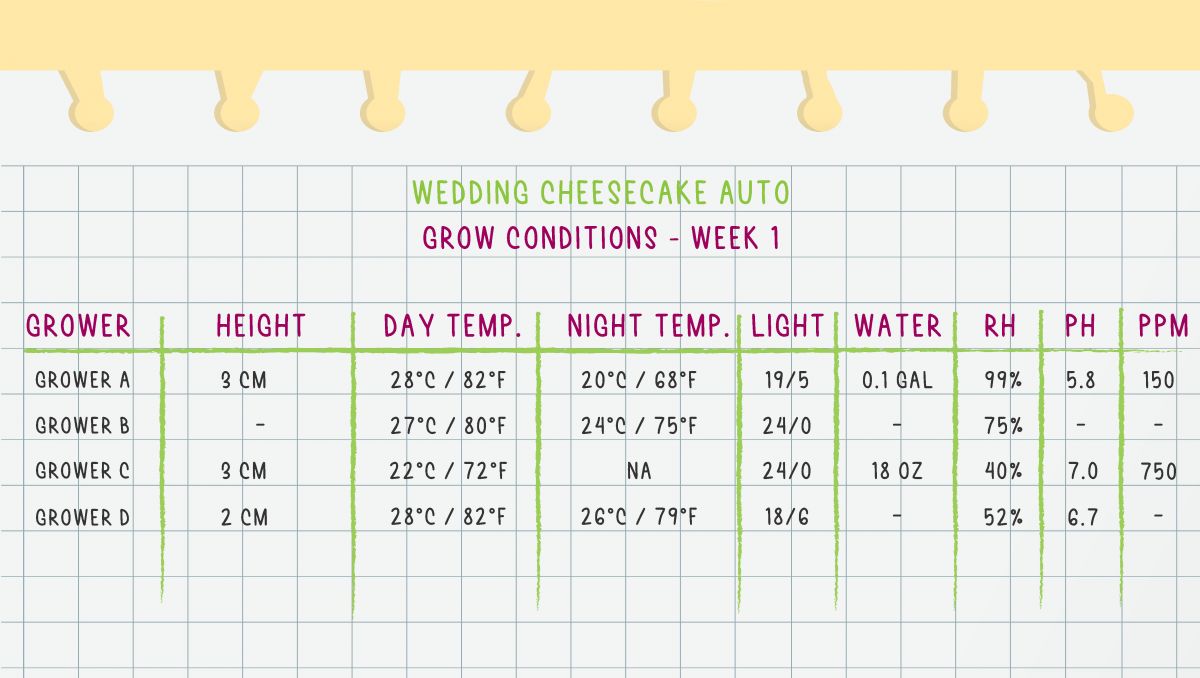 WEDDING CHEESECAKE AUTO
GROW CONDITIONS - WEEK 1
GROWER HEIGHT DAY TEMP. NIGHT TEMP. LIGHT WATER RH PH PPM
GROWER A 3 CM 28°C / 82°F 20°C / 68°F 19/5 0.1 GAL 99% 5.8 150
GROWER B - 27°C / 80°F 24°C / 75°F 24/0 - 75% - -
GROWER C 3 CM 22°C / 72°F NA 24/0 18 OZ 40% 7.0 750
GROWER D 2 CM 28°C / 82°F 26°C / 79°F 18/6 - 52% 6.7 -